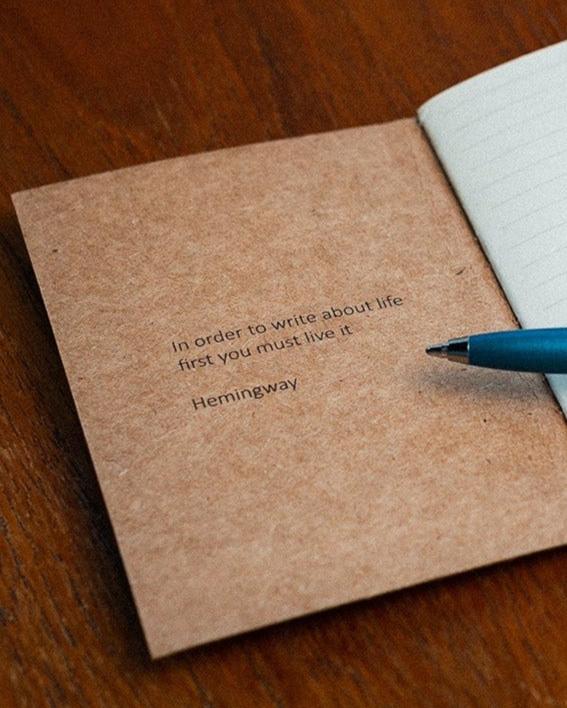 In order to write about life
first you must live it
Hemingway